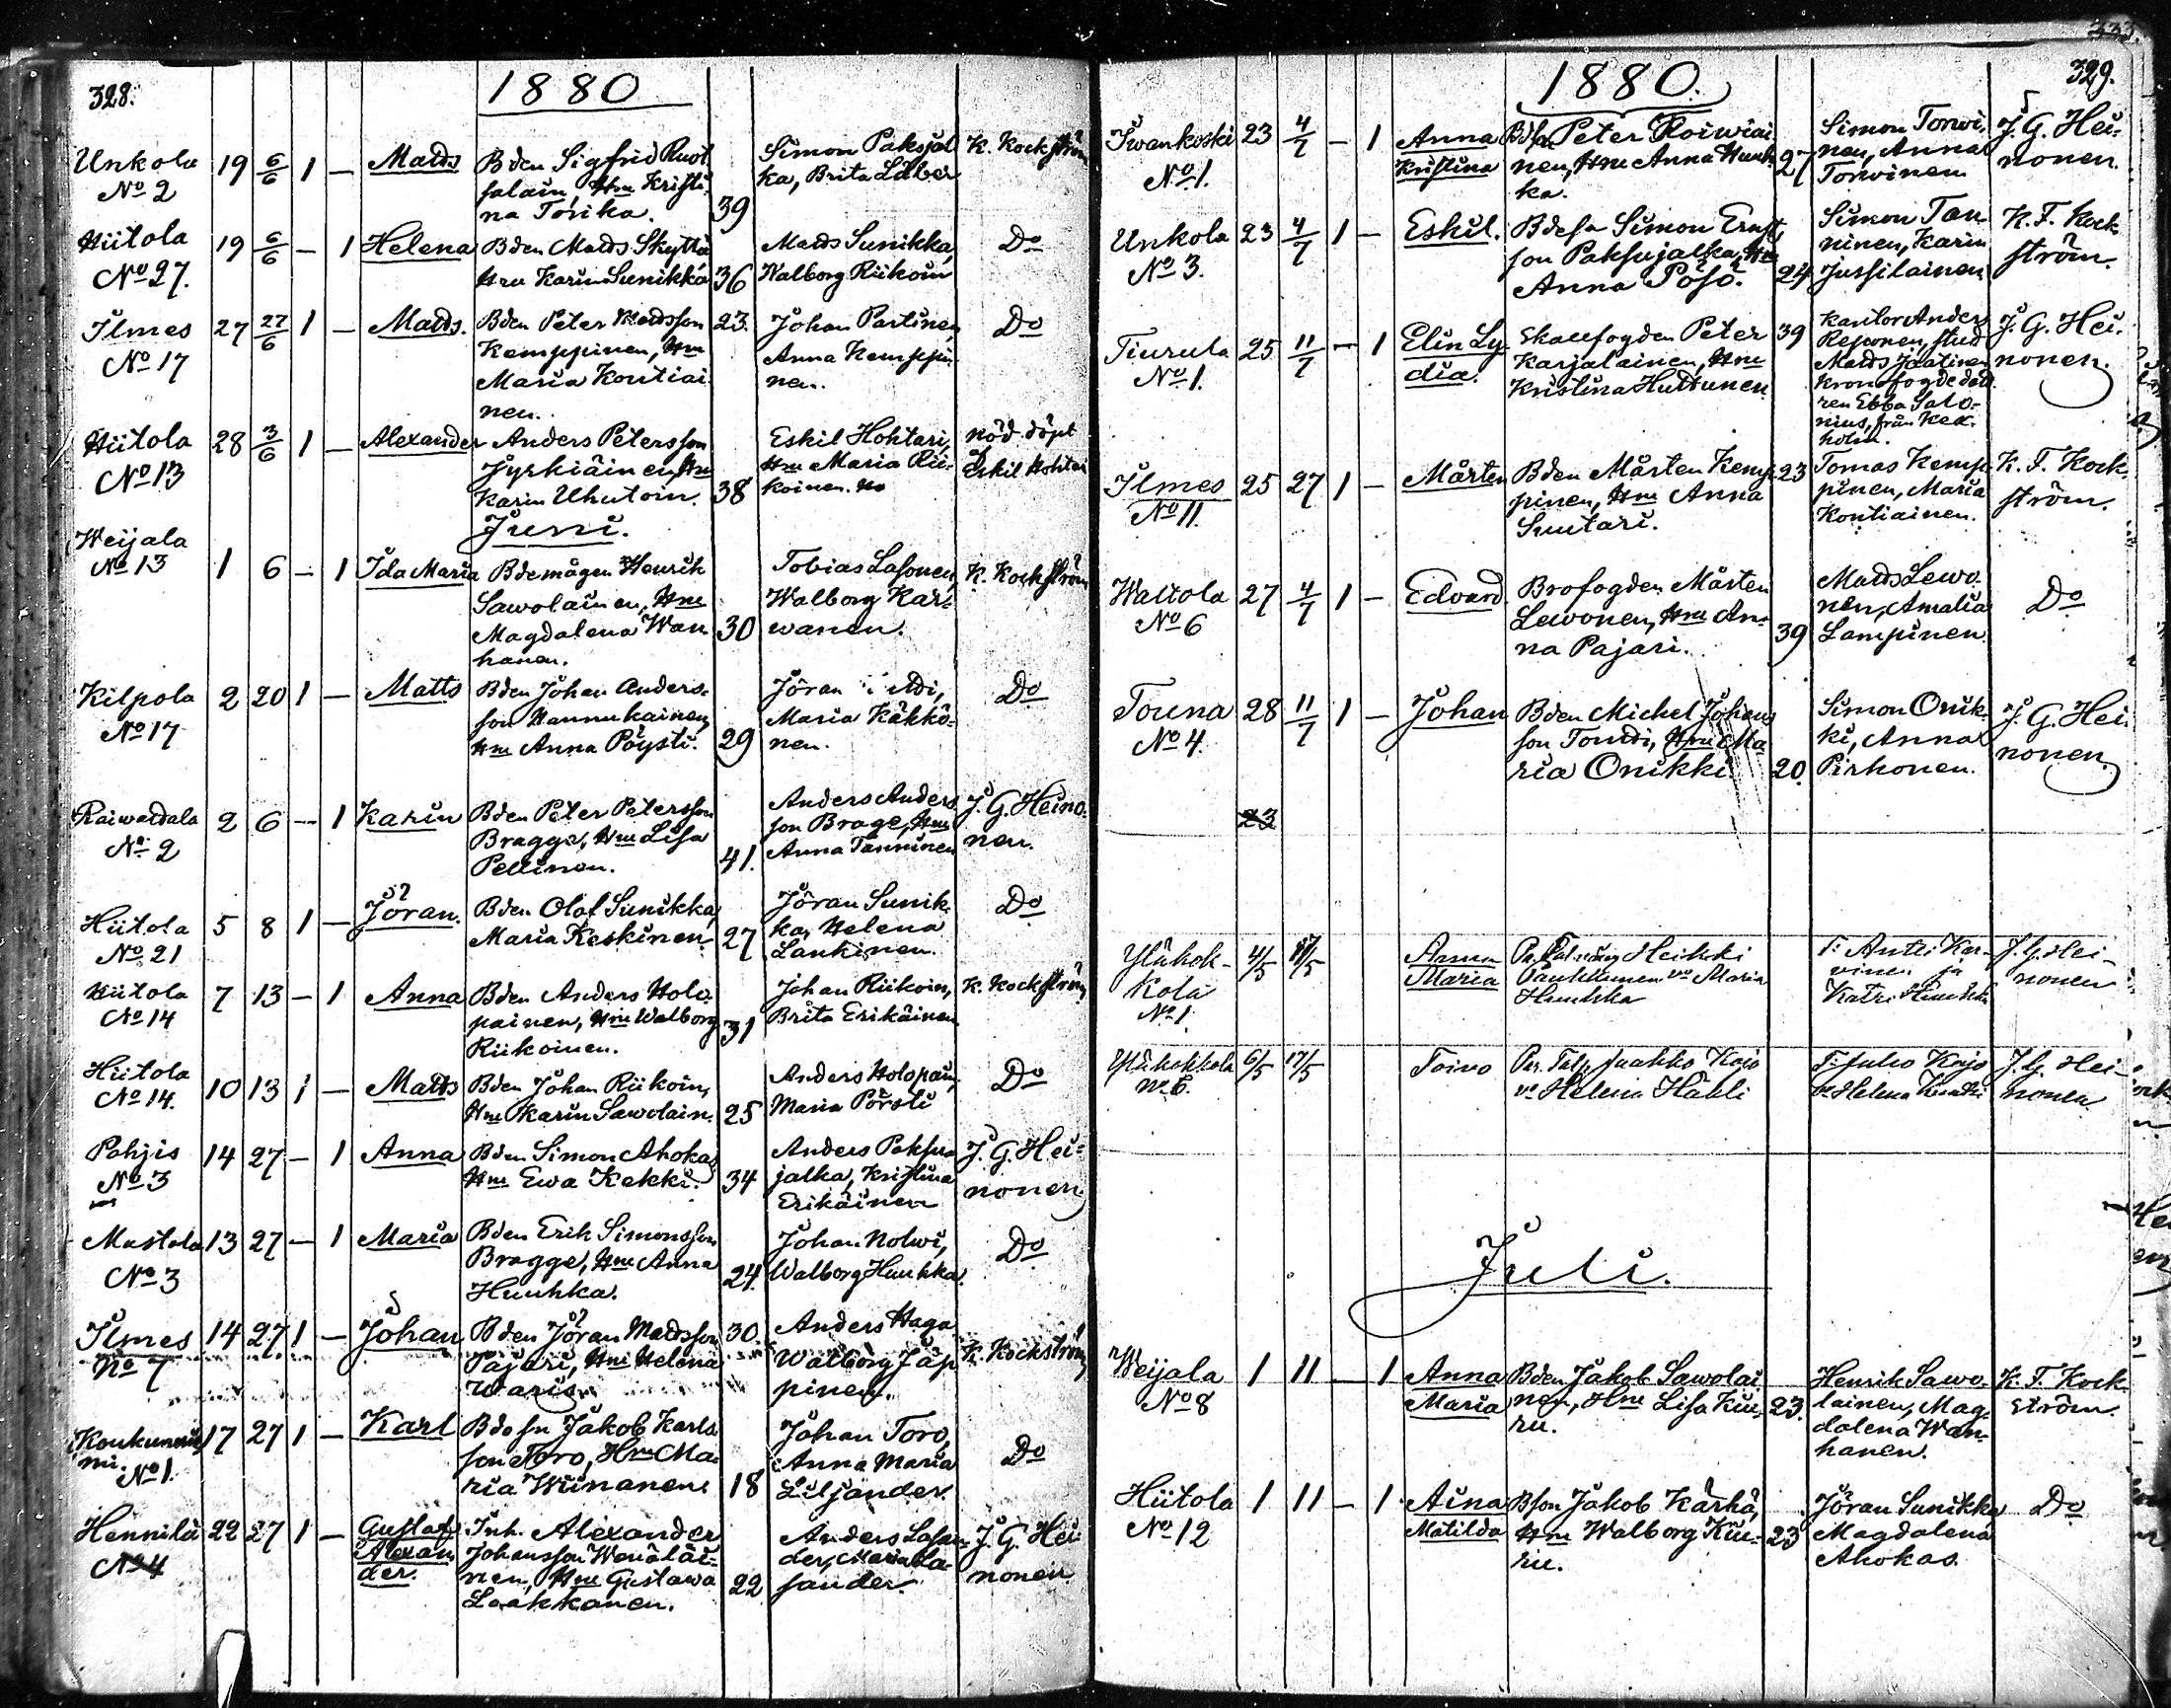 328.
1880
Unkola No 2 19 6/6 1 — Matts Bden Sigfrid Ruot
salain, Hm Kristi
na Torika. 39 Simon Paksjal
ka, Brita Läber K. Kockström
Hiitola No 27. 19 6/6 — 1 Helena Bden Matts Skyttä
Hru Karin Sunikka 36 Matts Sunikka,
Walborg Riikoin Do
Ilmes No 17 27 27/6 1 — Matts. Bden Peter Mattsson 23.
Kemppinen, Hm
Maria Kontiai
nen. Johan Partinen,
Anna Kemppi
nen. Do
Hiitola No 13 28 3/6 1 — Alexander Anders Petersson
Jyrkiäinen, Hm
Karin Uhutoin. 38 Eskil Hohtari,
Hm Maria Rii
koinen. nöd döpt
af
Eskil Hohtari
Juni.
Weijala No 13 1 6 — 1 Ida Maria Bdemågen Henrik
Sawolainen, Hm
Magdalena Wan
hanen. 30 Tobias Lasonen,
Walborg Kar-
wanen. K. Kockström
Kilpola No 17 2 20 1 — Matts Bden Johan Anders-
son Hannukainen,
Hm Anna Pöysti. 29 Jöran
Maria Käkkö-
nen. Do
Raiwattala No 2 2 6 — 1 Karin Bden Peter Petersson
Bragge, Hm Lisa
Pellinen. 41. Anders Anders
son Brage, Hm
Anna Tanninen J. G. Heino
nen.
Hiitola No 21 5 8 1 — Jöran. Bden Olof Sunikka,
Maria Keskinen 27 Jöran Sunik
ka, Helena
Lankinen. Do
Hiitola No 14 7 13 — 1 Anna Bden Anders Holo
painen, Hm Walborg
Riikoinen. 31 Johan Riikoin,
Brita Erikäinen K. Kockström
Hiitola No 14. 10 13 1 — Matts Bden Johan Riikoin,
Hm Karin Sawolain. 25 Anders Holopain,
Maria Pörsti Do
Pohjis No 3 14 27 — 1 Anna Bden Simon Ahokas
Hm Ewa Kekki. 34 Anders Paksu
jalka, Kristina
Erikäinen J. G. Hei-
nonen
Mustola No 3 13 27 — 1 Maria Bden Erik Simonsson
Bragge, Hm Anna
Huuhka. 24. Johan Nolwi,
Walborg Huuhka. Do
Ilmes No 7 14 27 1 — Johan Bden Jöran Mattsson 30.
Pajari, Hm Helena
Waris Anders Haga
Walborg Jäp
pinen. K. Kockström
Koukunnie
mi. No 1. 17 27 1 — Karl Bdesn Jakob Karls
son Toro, Hm Ma
ria Wiinanen. 18 Johan Toro,
Anna Maria
Liljander. Do
Hennilä No 4 22 27 1 — Gustaf
Alexan
der. Inh. Alexander
Johansson Wenäläi-
nen, Hm Gustawa
Laakkanen. 22 Anders Lasan-
der, Maria La-
sander. J. G. Hei
nonen
333.
329.
1880.
Iwankoski No 1. 23 4/7 — 1 Anna
Kristina Bdsn Peter Roiwiai
nen, Hm Anna Huuh
ka. 27 Simon Torwi,
nen, Anna
Torwinen J. G. Hei-
nonen.
Unkola No 3. 23 4/7 1 — Eskil. Bdesn Simon Ernst
son Paksujalka, Hm
Anna Pösö. 24 Simon Tan
ninen, Karin
Jussilainen K. F. Kock
ström.
Tiurula No 1. 25 11/7 — 1 Elin Ly
dia. Skallfogden Peter 39
Karjalainen, Hm
Kristina Huttunen Kantor Anders
Reponen, stud
Matts Jaatinen
Kronofogdedott
ren Ebba Salo-
nius, från Kex-
holm. J. G. Hei.
nonen.
Ilmes No 11. 25 27 1 — Mårten Bden Mårten Kemp 23
pinen, Hm Anna
Suutari. Tomas Kemp
pinen, Maria
Kontiainen. K. F. Kock
ström.
Waitola No 6 27 4/7 1 — Edvard Brofogden Mårten
Lewonen, Hm An-
na Pajari. 39 Matts Lewo-
nen, Amalia
Lampinen Do
Touna No 4. 28 11/7 1 — Johan Bden Michel Johans
son Tontti, Hm Ma
ria Onikki. 20. Simon Onik
ki, Anna
Pirhonen. J. G. Hei
nonen.
23
Ylähok-
kola
No 1. 4/5 17/5 Anna
Maria Heikki
vo Maria
Huuhka T: Antti Kar-
vinen ja
Katri Huuhka J. G. Hei-
nonen
Ylähokkola No 6. 6/5 17/5 Toivo Pr. Tal. Jaakko Kojo
vo Helena Häkli T: Juho Kojo
vo Helena J. G. Hei-
nonen
Juli.
Weijala No 8 1 11 — 1 Anna
Maria Bden Jakob Sawolai
nen, Hm Lisa Kiu-
ru. 23. Henrik Sawo-
lainen, Mag-
dalena Wan-
hanen. K. F. Kock
ström.
Hiitola No 12 1 11 — 1 Aina
Matilda Bson Jakob Kärhä,
Hm Walborg Kiu-
ru. 23 Jöran Sunikka
Magdalena
Ahokas. Do